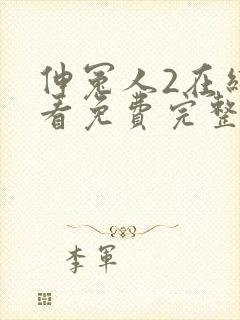 伸冤人2在
看免费完整
李军